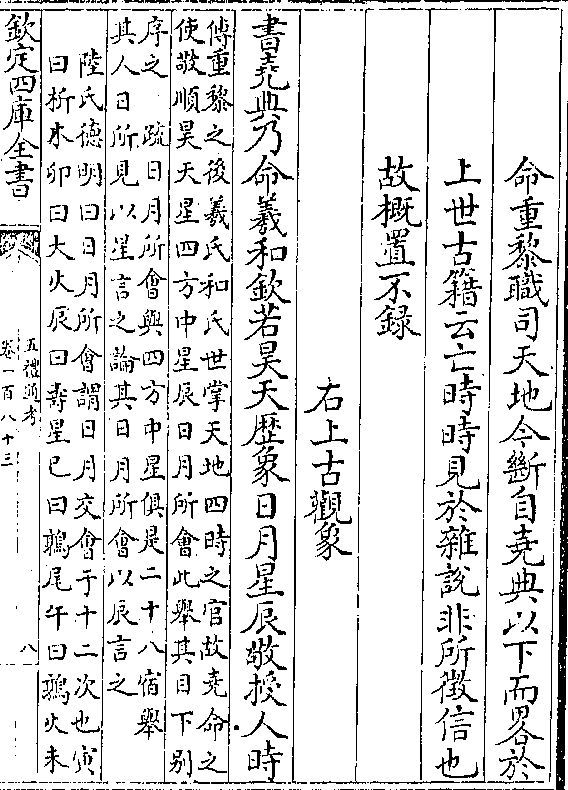 命重黎職司天地今斷自堯典以下而畧於
上世古籍云亡時時見於雜說非所徵信也
故概置不録
右上古觀象
書堯典乃命羲和欽若昊天歴象日月星辰敬授人時
傳重黎之後羲氏和氏世掌天地四時之官故堯命之
使敬順昊天星四方中星辰日月所會此舉其目下别
序之　疏日月所會與四方中星俱是二十八宿舉
其人目所見以星言之論其日月所會以辰言之
陸氏德明曰日月所會謂日月交會于十二次也寅
曰析木卯曰大火辰曰壽星巳曰鶉尾午曰鶉火未
欽定四庫全書
五禮通考
卷一百八十三
八